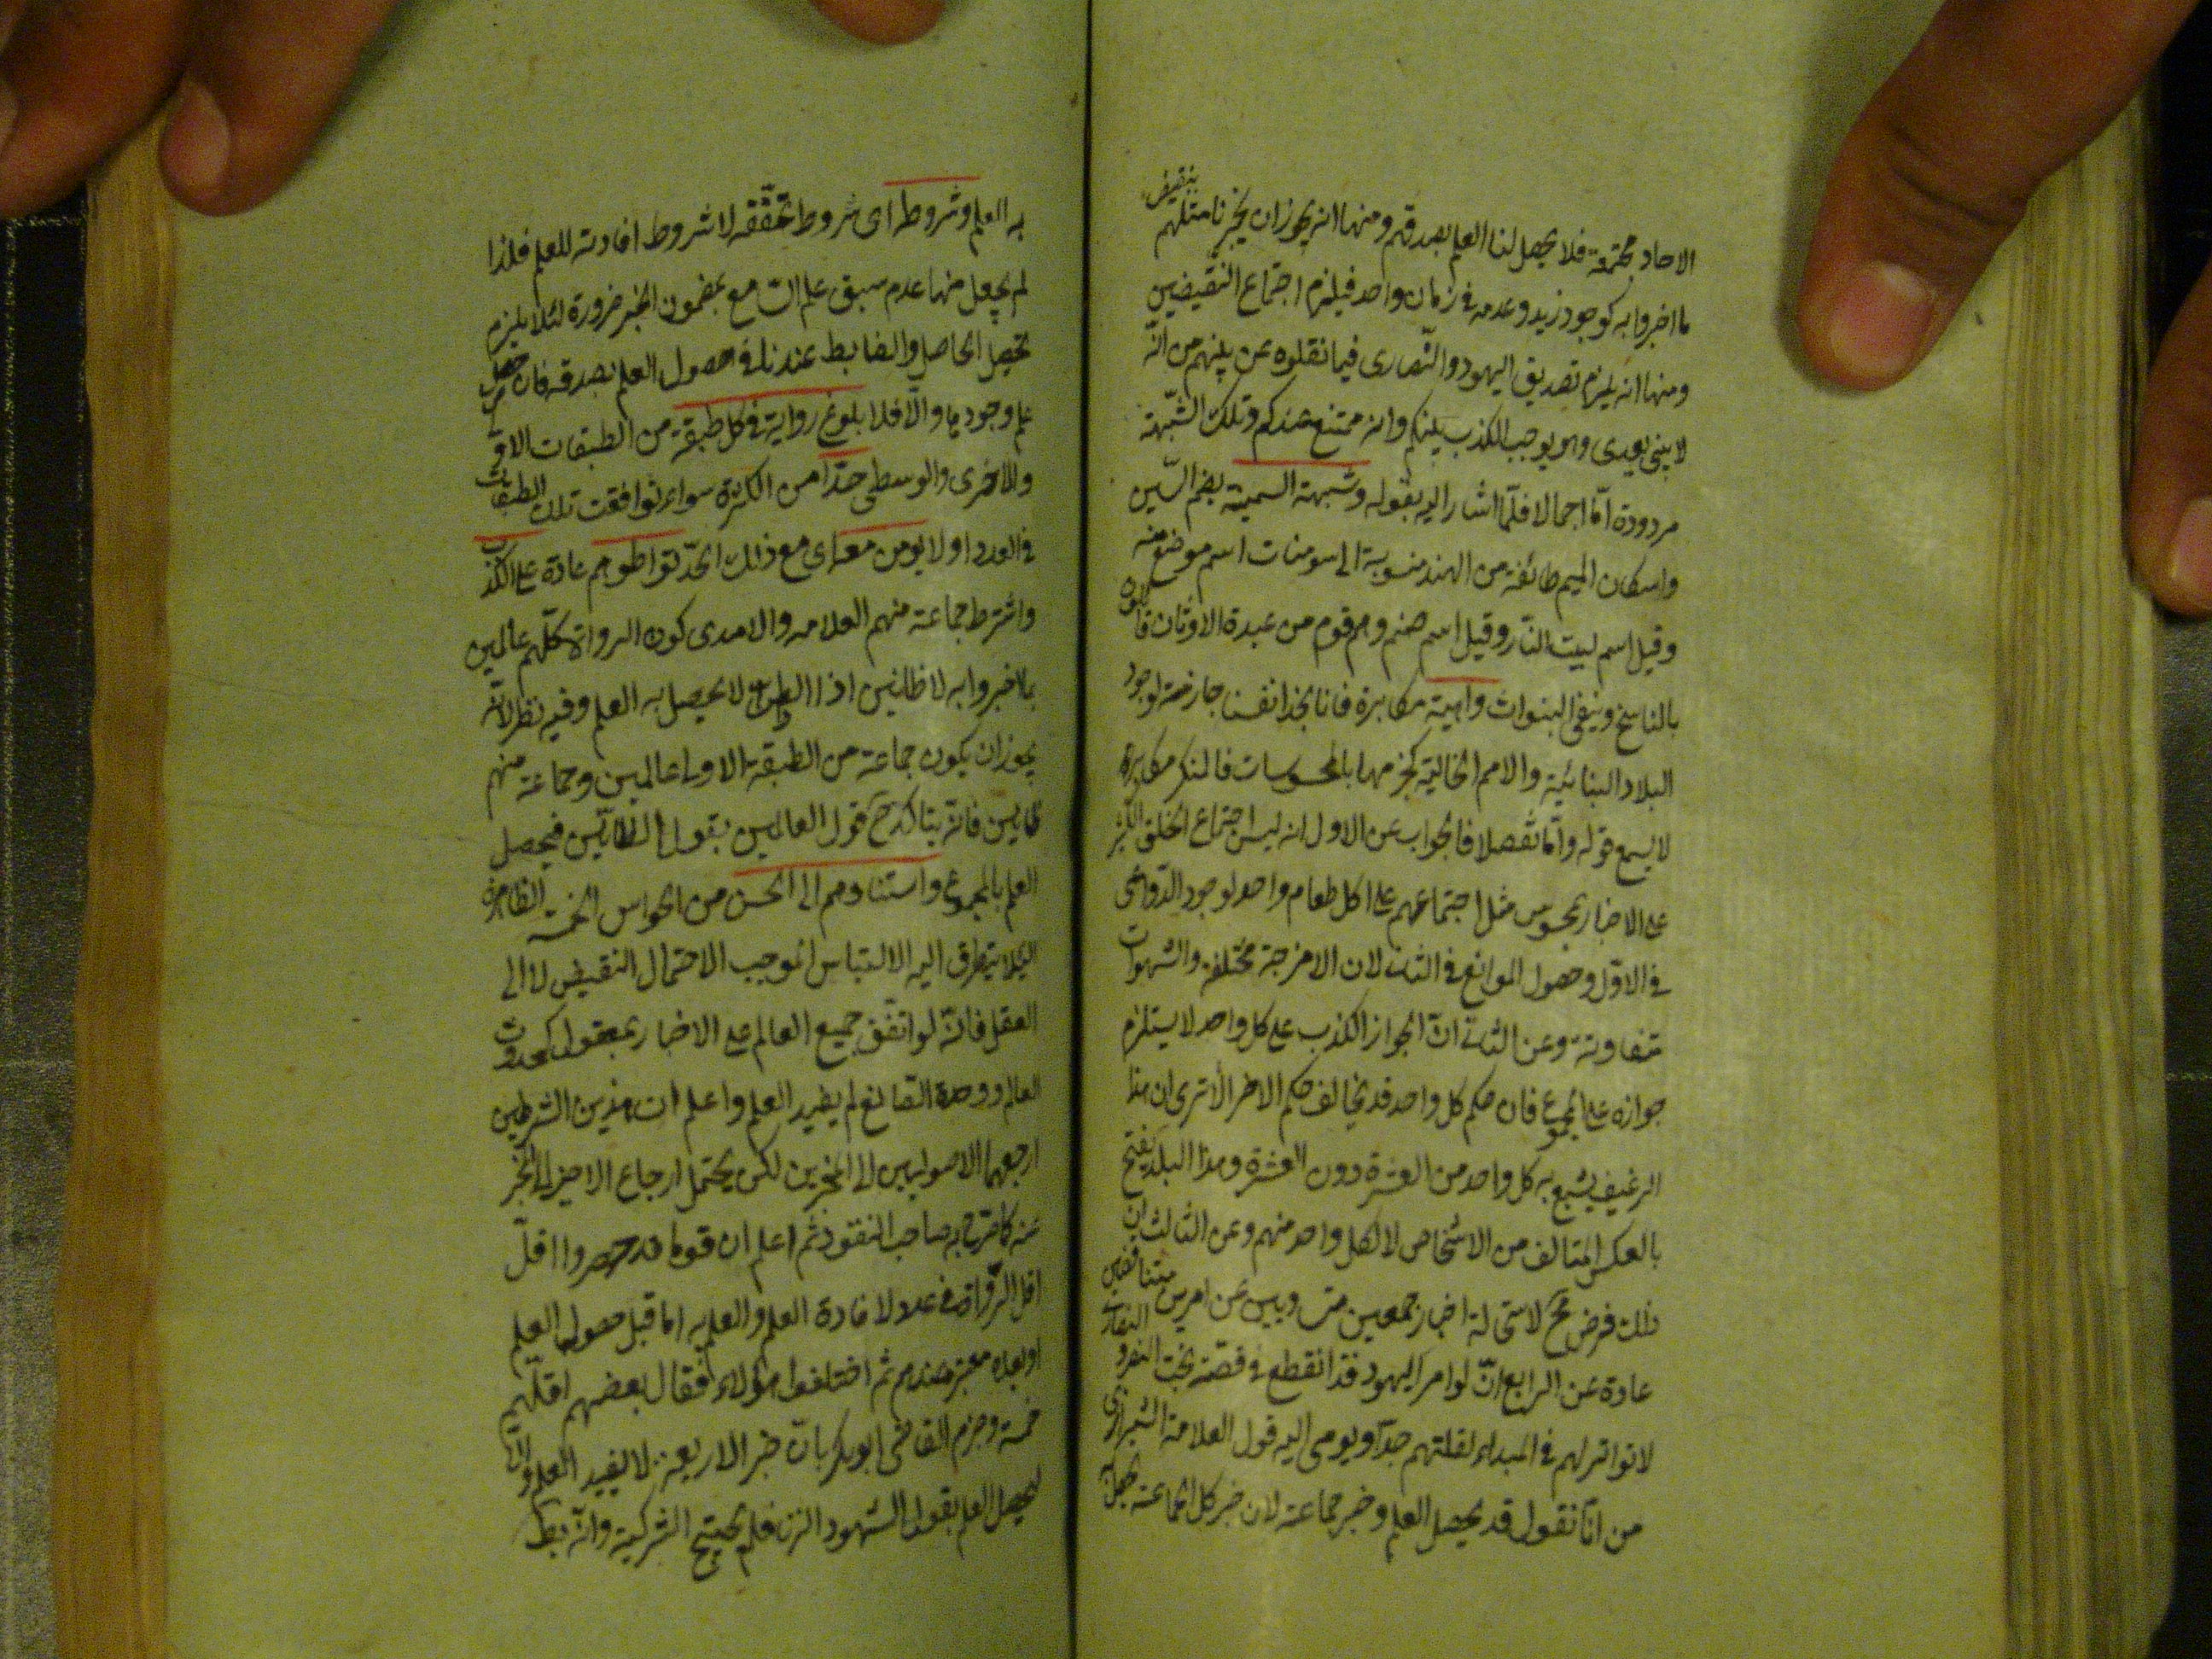 الاحاد مجتمعة فلا يحصل لنا العلم بصدقهم ومنها انه يجوز ان يخبرنا مثلهم بنقيض
ما اخبروا به كوجود زيد وعدمه في زمان واحد فيلزم اجتماع النقيضين
ومنها انه يلزم تصديق اليهود والنّصارى فيما نقلوه عن نبيهم من انّه
لا نبي بعدى وهو يوجب الكذب بنبيكم وانه ممتنع عندكم وتلك الشّبهة
مردودة امّا اجمالا فلما اشار اليه بقوله وشبهة السمنية بضم السّين
واسكان الميم طائفة من الهند منسوبة الى سومنات اسم موضع منه
وقيل اسم لبيت النّار وقيل اسم صنم وهم قوم من عبدة الاوثان قالوا
بالتناسخ وبنفى النبوات واهية مكابرة فانا نجد انفسنا جازمة لوجود
البلاد النائية والامم الخالية كجزمها بالمحسوسات فالمنكر مكابرة
لا يسمع قوله وامّا تفصلا فالجواب عن الاول انه ليس اجتماع الخلق الكثير
على الاخبار بمحسوس مثل اجتماعهم على اكل طعام واحد لوجود الدّواعى
في الاوّل وحصول الموانع في الثانى لان الامزجة مختلفة والشهوات
متفاوتة وعن الثانى انّ الجواز الكذب على كل واحد لا يستلزم
جوازه على المجموع فان حكم كل واحد قد يخالف حكم الاخر الا ترى ان هذا
الرغيف يشبع به كل واحد من العشرة دون العشرة وهذا البلد يفتح
بالعسكر المتالف من الاشخاص لا لكل واحد منهم وعن الثالث ان
ذلك فرض مح لاستحالة اخبار جمعين متساويين عن امرين متنافيين
عادة عن الرابع انّ لو امر اليهود فقد انقطع في قصّة بخت النصر
لا تواتر لهم في المبداء لقلتهم جدّا ويومى اليه قول العلامة الشيرازى
من انّا نقول قد يحصل العلم وخبر جماعة لان خبر كل الجماعة يحصل
به العلم وشروطه اى شروط تحقّقه لا شروط افادته للعلم فلذا
لم يجعل منها عدم سبق علم السامع بمضمون الخبر ضرورة لئلا يلزم
تحصيل الحاصل والضابط عندنا في حصول العلم بصدقه فان حصل
علم وجودها والّا فلا بلوغ رواية في كل طبقة من الطبقات الاولى
والاخرى والوسطى حدّا من الكثرة سواء توافقت تلك الطبقات
في العدد اولا يؤمن معه اى مع ذلك الحدّ تواطوهم عادة على الكذب
واشترط جماعة منهم العلامه والامدى كون الرواة كلّهم عالمين
بما اخبروا به لا ظانين اذ الظن لا يحصل به العلم وفيه نظر لانّه
يجوز ان يكون جماعة من الطبقة الاولى عالمين وجماعة منهم
ظانين فانّه يتاكد ح قول العالمين بقول الظانّين فيحصل
العلم بالمجموع واستنادهم الى الحس من الحواس الخمسة الظاهرة
لئلا يتطرق اليه الالتباس الموجب الاحتمال النقيض لا الى
العقل فانّه لو اتفق جميع العالم على الاخبار بمعقول كحدوث
العالم ووحدة الصّانع لم يفيد العلم واعلم ان هذين الشرطين
ارجعهما الاصوليين الى المخبرين لكن يحتمل ارجاع الاخير الى الخبر
عنه كما صرّح به صاحب النقود ثم اعلم ان قوما قد حصروا اقلّ
اقل الرّواة في عدد لافادة العلم والعلم به اما قبل حصول العلم
او بعده معتبر عندهم ثم اختلفوا هؤلاء فقال بعضهم اقلّهم
خمسة وجزم القاضى ابو بكر بانّ خبر الاربعة لا يفيد العلم والّا
لحصل العلم بقول الشهود الزنا فلم يحتج التزكية وانّه بط